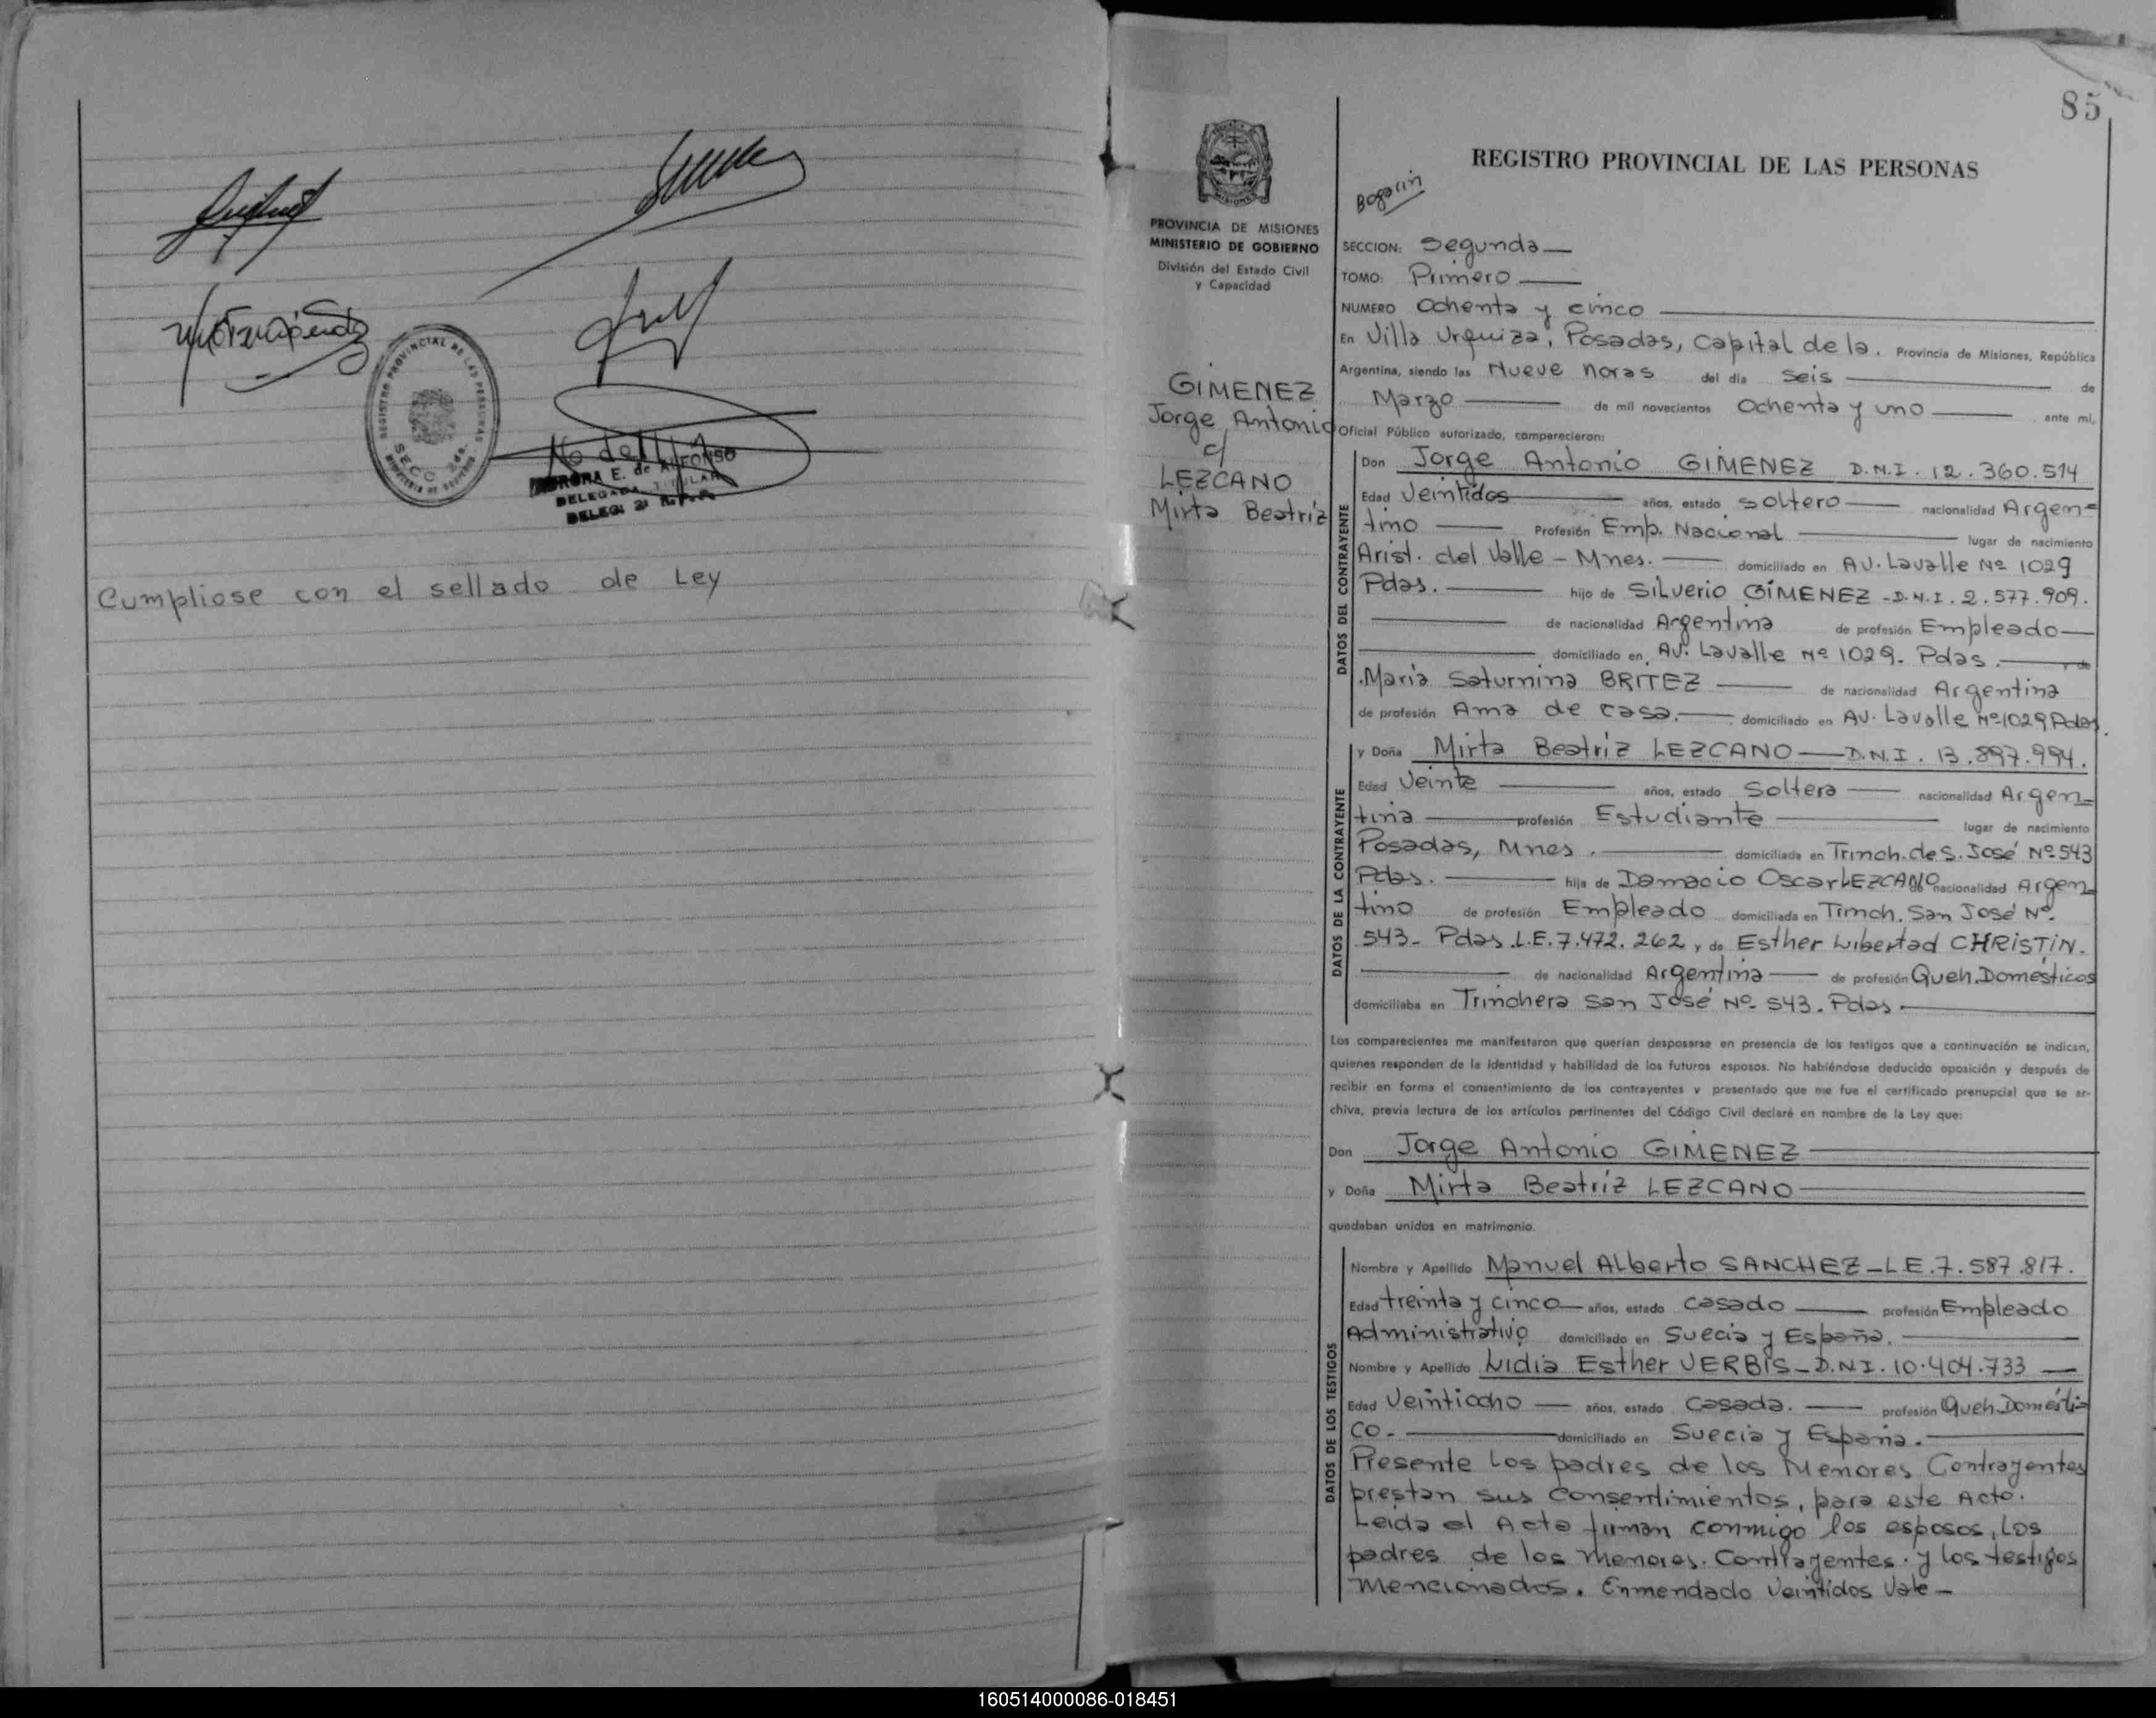 REGISTRO PROVINCIAL DE LAS PERSONAS
SECC. 2da.
No dell
AURORA E. de ALFONSO
DELEGADA TITULAR
Cumpliose con el sellado de Ley
85
REGISTRO PROVINCIAL DE LAS PERSONAS
Bogarin
MISIONES
PROVINCIA DE MISIONES
MINISTERIO DE GOBIERNO
División del Estado Civil
y Capacidad
GIMENEZ
Jorge Antonio
c/
LEZCANO
Mirta Beatriz
SECCION: Segunda
TOMO: Primero
NUMERO Ochenta y cinco
En Villa Urquiza, Posadas, Capital de la. Provincia de Misiones, República
Argentina, siendo las Nueve horas del día Seis de
Marzo de mil novecientos Ochenta y uno ante mí,
Oficial Público autorizado, comparecieron:
DATOS DEL CONTRAYENTE
Don Jorge Antonio GIMENEZ D.N.I. 12.360.514
Edad Veintidos años, estado Soltero nacionalidad Argen=
tino Profesión Emp. Nacional lugar de nacimiento
Arist. del Valle - Mnes. domiciliado en AV. Lavalle Nº 1029
Pdas. hijo de SILVERIO GIMENEZ - D.N.I. 2.577.909.
de nacionalidad Argentina de profesión Empleado
domiciliado en AV. Lavalle Nº 1029. Pdas. y de
Maria Saturnina BRITEZ de nacionalidad Argentina
de profesión Ama de casa. domiciliado en AV. Lavalle Nº 1029 Pdas.
DATOS DE LA CONTRAYENTE
y Doña Mirta Beatriz LEZCANO D.N.I. 13.897.994.
Edad Veinte años, estado Soltera nacionalidad Argen=
tina profesión Estudiante lugar de nacimiento
Posadas, Mnes. domiciliada en Trinch. de S. José Nº 543
Pdas. hija de Damacio Oscar LEZCANO de nacionalidad Argen=
tino de profesión Empleado domiciliada en Trinch. San José Nº.
543- Pdas. L.E. 7.472.262 y de Esther Libertad CHRISTIN.
de nacionalidad Argentina de profesión Queh. Domésticos
domiciliaba en Trinchera San José Nº 543. Pdas
Los comparecientes me manifestaron que querían desposarse en presencia de los testigos que a continuación se indican,
quienes responden de la identidad y habilidad de los futuros esposos. No habiéndose deducido oposición y después de
recibir en forma el consentimiento de los contrayentes y presentado que me fue el certificado prenupcial que se ar-
chiva, previa lectura de los artículos pertinentes del Código Civil declaré en nombre de la Ley que:
Don Jorge Antonio GIMENEZ
y Doña Mirta Beatriz LEZCANO
quedaban unidos en matrimonio.
DATOS DE LOS TESTIGOS
Nombre y Apellido Manuel ALberto SANCHEZ - L.E. 7.587.817.
Edad treinta y cinco años, estado Casado profesión Empleado
Administrativo domiciliado en Suecia y España.
Nombre y Apellido Lidia Esther VERBIS - D.N.I. 10.404.733
Edad Veintiocho años, estado Casada. profesión Queh. Domésti=
co. domiciliado en Suecia y España.
Presente Los padres de los Menores Contrayentes
prestan sus consentimientos, para este Acto.
Leida el Acta firman conmigo los esposos, Los
padres de los menores. Contrayentes. y los testigos
mencionados. Enmendado veintidos Vale -
160514000086-018451